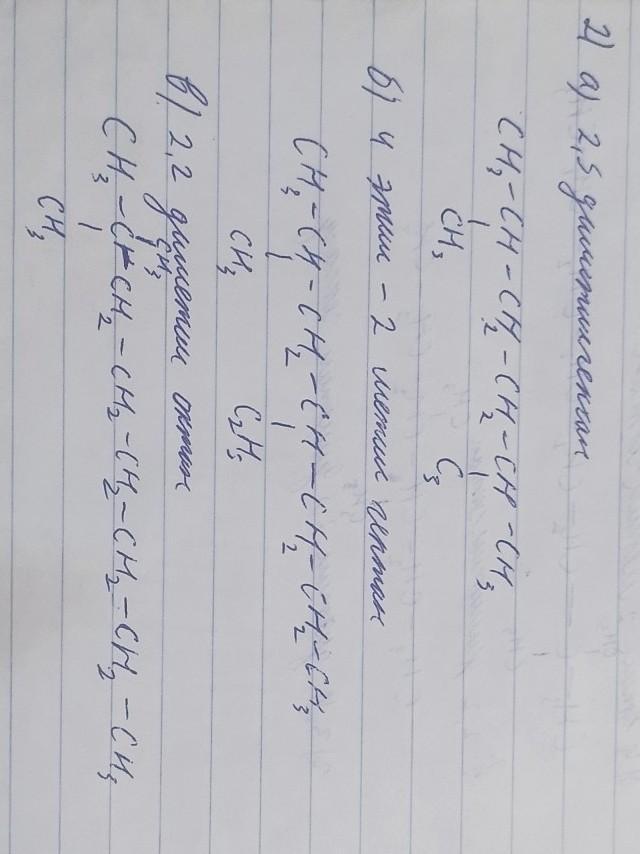 2) а) 2,5 диметилгексан
CH₃-CH-CH₂-CH₂-CH-CH₃
CH₃ C₃
б) 4 этил - 2 метил гептан
CH₃-CH-CH₂-CH-CH₂-CH₂-CH₃
CH₃ C₂H₅
в) 2,2 диметил октан
CH₃
CH₃-CH-CH₂-CH₂-CH₂-CH₂-CH₂-CH₃
CH₃